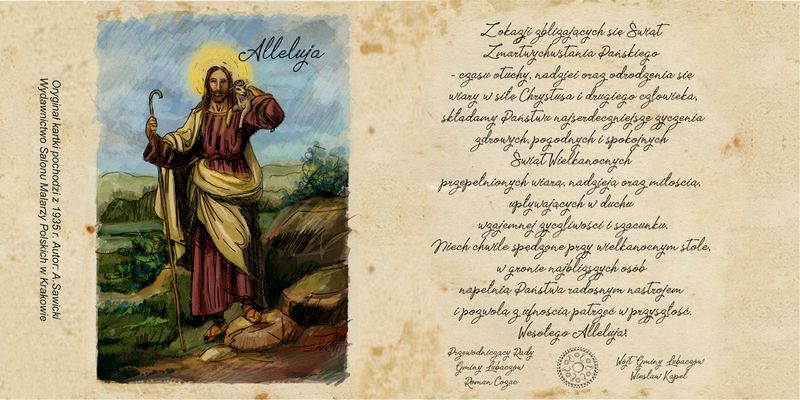 Oryginał kartki pochodzi z 1935 r. Autor: A.Sawicki
Wydawnictwo Salonu Malarzy Polskich w Krakowie
Alleluja
Z okazji zbliżających się Świat
Zmartwychwstania Pańskiego
- czasu otuchy, nadziei oraz odrodzenia się
wiary w siłę Chrystusa i drugiego człowieka,
składamy Państwu najserdeczniejsze życzenia
zdrowych, pogodnych i spokojnych
Świat Wielkanocnych
przepełnionych wiara, nadzieja oraz miłościa,
upływających w duchu
wzajemnej życzliwości i szacunku.
Niech chwile spędzone przy wielkanocnym stole,
w gronie najbliższych osób
napełnia Państwa radosnym nastrojem
i pozwola z ufnościa patrzeć w przyszłość.
Wesołego Alleluja!
Przewodniczący Rady
Gminy Lubaczów
Roman Cozac
Wójt Gminy Lubaczów
Wiesław Kapel